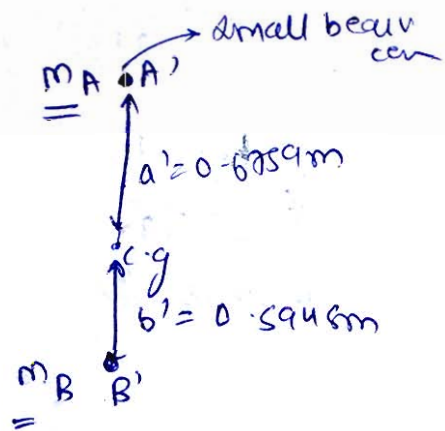 small bearing
cen
mA A'
a' = 0.6759m
c.g
b' = 0.5945m
mB B'